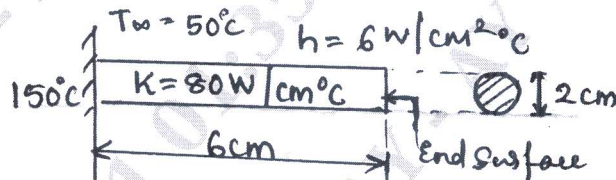 T∞ = 50°C
h = 6 W/cm²°C
150°C
K = 80 W/cm°C
2 cm
6 cm
End Surface